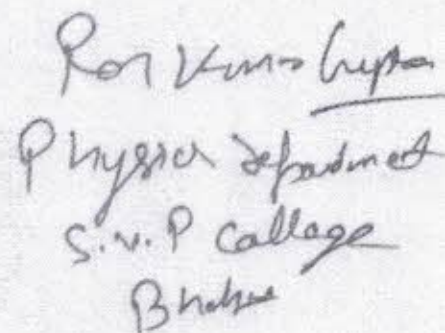 Raj Kumar Gupta
Physics Department
S.V.P Collage